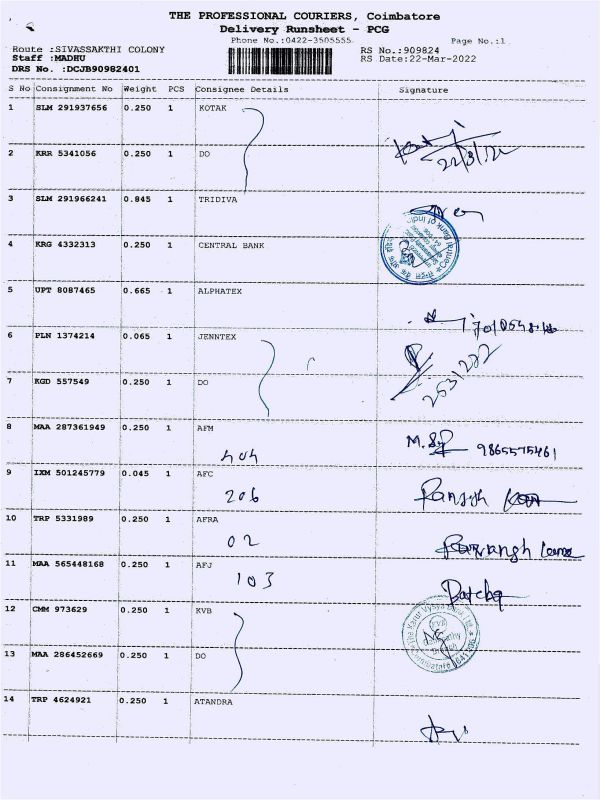 THE PROFESSIONAL COURIERS, Coimbatore
Delivery Runsheet - PCG
Phone No.:0422-3505555
Page No.:1
Route :SIVASSAKTHI COLONY
Staff :MADHU
DRS No. :DCJB90982401
RS No.:909824
RS Date:22-Mar-2022
S No Consignment No Weight PCS Consignee Details Signature
1 SLM 291937656 0.250 1 KOTAK
2 KRR 5341056 0.250 1 DO
3 SLM 291966241 0.845 1 TRIDIVA
4 KRG 4332313 0.250 1 CENTRAL BANK
5 UPT 8087465 0.665 1 ALPHATEX
6 PLN 1374214 0.065 1 JENNTEX
7 KGD 557549 0.250 1 DO
8 MAA 287361949 0.250 1 AFM
404 M.
9 IXM 501245779 0.045 1 AFC
206
10 TRP 5331989 0.250 1 AFRA
02
11 MAA 565448168 0.250 1 AFJ
103
12 CMM 973629 0.250 1 KVB
13 MAA 286452669 0.250 1 DO
14 TRP 4624921 0.250 1 ATANDRA